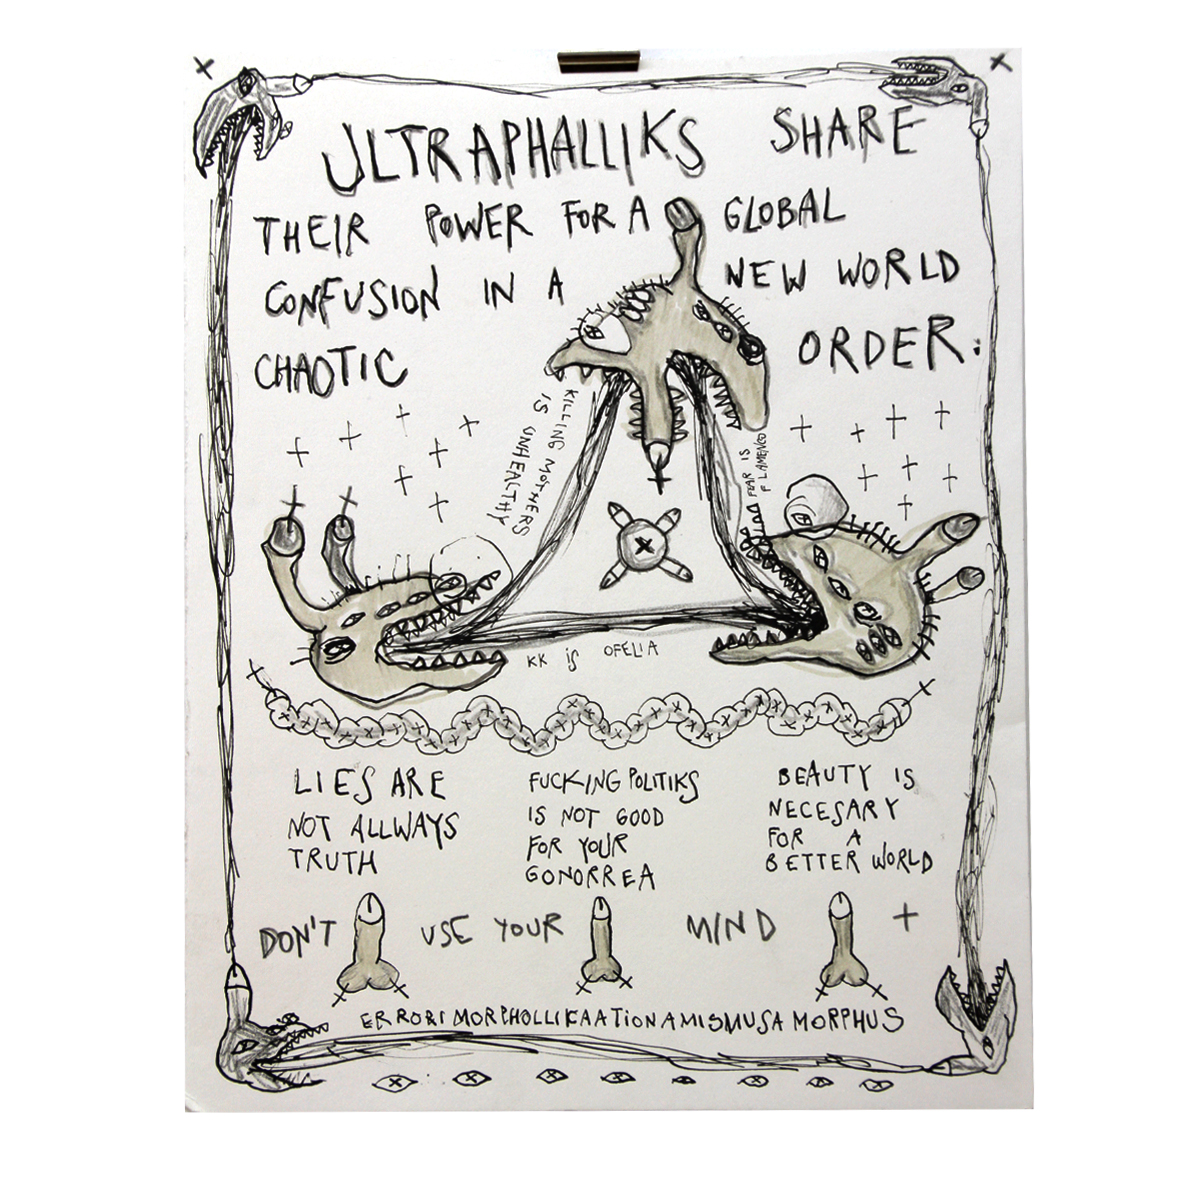 ULTRAPHALLIKS SHARE
THEIR POWER FOR A GLOBAL
CONFUSION IN A NEW WORLD
CHAOTIC ORDER:
KILLING MOTHERS
IS UNHEALTHY
FEAR IS
FLAMENCO
KK iS OFELIA
LIES ARE
NOT ALLWAYS
TRUTH
FUCKING POLITIKS
IS NOT GOOD
FOR YOUR
GONORREA
BEAUTY IS
NECESARY
FOR A
BETTER WORLD
DON'T USE YOUR MIND
ERRORIMORPHOLLIKAATIONAMISMUSA MORPHUS